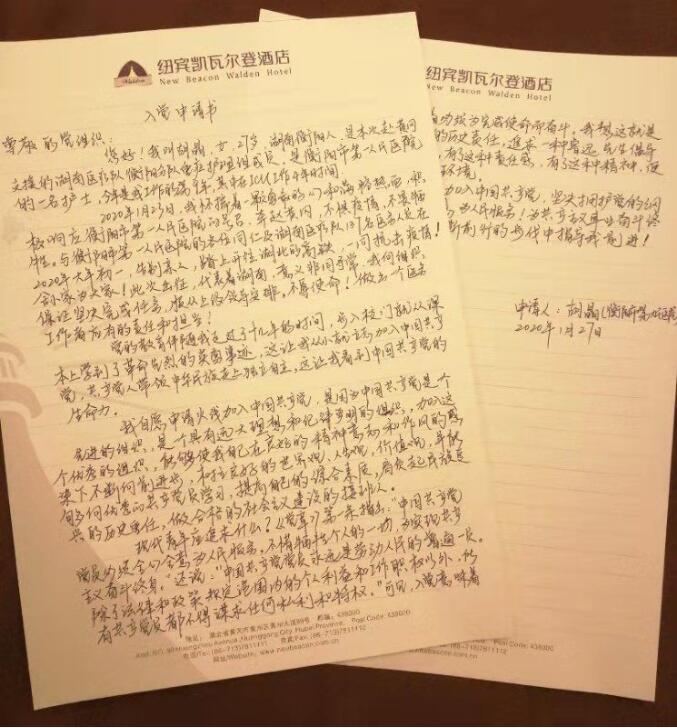 纽宾凯瓦尔登酒店
New Beacon Walden Hotel
入党申请书
尊敬的党组织：
您好！我叫胡晶，女，27岁，湖南衡阳人，是本次赴黄冈
支援的湖南医疗队衡阳分队重症护理组成员，是衡阳市第一人民医院
的一名护士，今年是我工作的第7年，其中在ICU工作4年时间。
2020年1月25日，我怀揣着一颗
极响应衡阳市第一人民医院的号召，奔赴黄冈，不惧疫情，不畏牺
牲。与衡阳市第一人民医院的
2020年大年初一，告别亲人，踏上开往湖北的高铁，一同抗击疫情！
舍小家为大家！此次出征，代表着湖南，意义非同寻常，我向组织
保证坚决完成任务，服从上级领导安排。不辱使命！做出一个医务
工作者应有的责任和担当！
党的教育伴随我走过了十几年的时间，步入校门前从课
本上学到了革命先烈的英勇事迹，这让我从小就立志加入中国共产
党，共产党人带领中华民族走上独立自主，这让我看到中国共产党的
生命力。
我自愿申请火线加入中国共产党，是因为中国共产党是个
先进的组织，是个具有远大理想和纪律严明的组织，加入这
个优秀的组织，能够使我自己在良好的精神意志和作风的感
染下不断向前进步，树立良好的世界观、人生观，价值观，并能
够向优秀的共产党员学习，提高自己的综合素质，肩负起民族复
兴的历史责任，做合格的社会主义建设的接班人。
现代青年应追求什么？《党章》第一条指出：“中国共产党
党员必须全心全意为人民服务，不惜牺牲个人的一切，为实现共产
主义奋斗终身。”还说：“中国共产党党员永远是劳动人民的普通一员。
除了法律和政策规定范围内的个人利益和工作职权以外，所
有共产党员都不得谋求任何私利和特权。”可见，入党意味着
Post Code: 438000
网址/Website: www.newbeacon.com.cn
纽宾凯瓦尔登酒店
New Beacon Walden Hotel
成功或为完成使命而奋斗。我想这就是
的历史责任，追求一种
有了这种责任感，有了这种精神，便
环境。
加入中国共产党，坚决拥护党的纲
为人民服务！为共产主义事业奋斗终
断前行的步伐中指导我前进！
申请人：胡晶（衡阳市第一人民医院）
2020年1月27日
Post Code: 438000